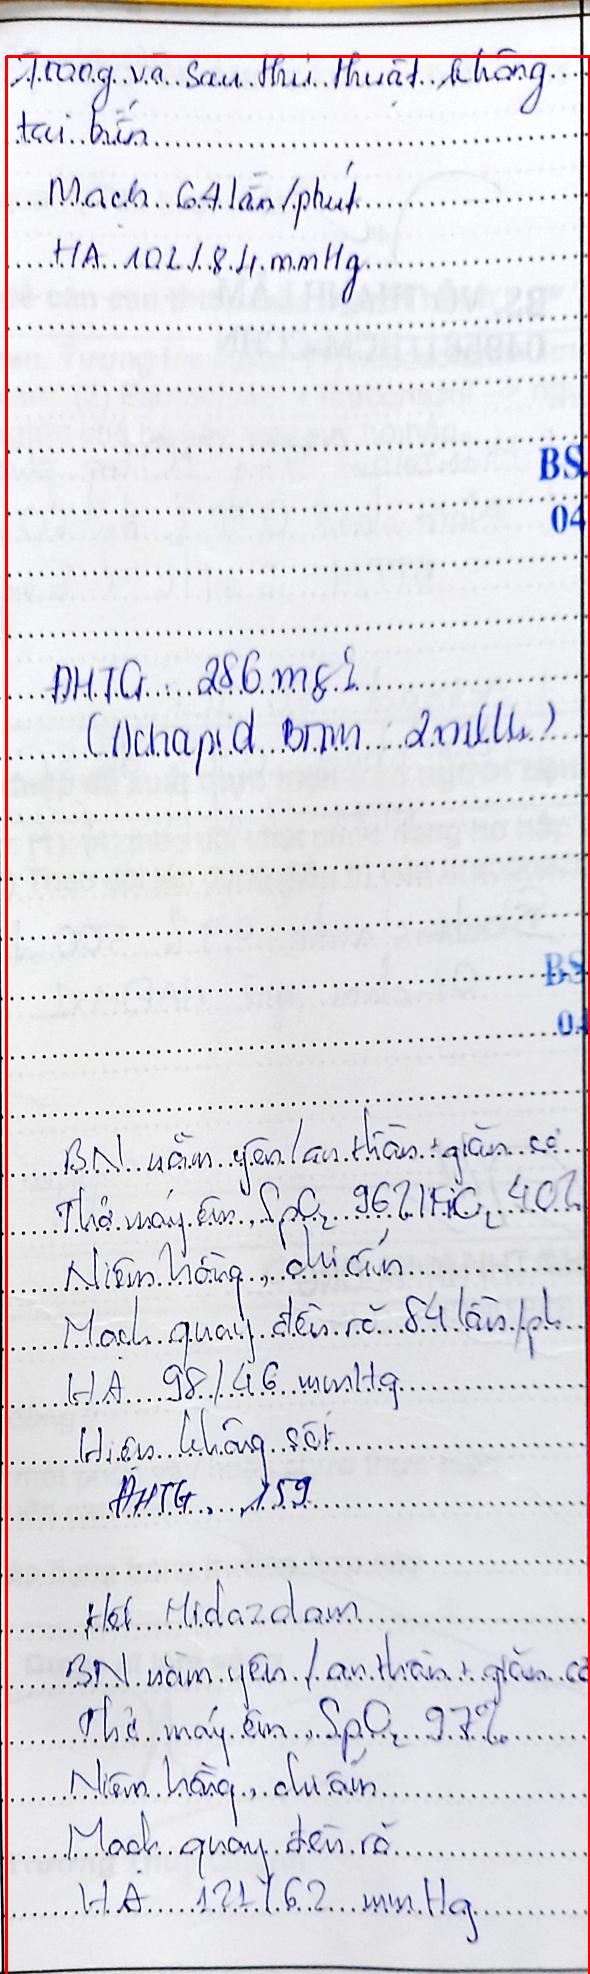 Trong và sau thủ thuật không
tai biến
Mạch 64 lần/phút
HA 102/84 mmHg
BS
04
ĐHTG: 286 mg%
(Actrapid 2 TDD)
BS
04
BN nằm yên/an thần + giãn cơ
Thở máy êm, SpO2 96%/FiO2 40%
Niêm hồng, chi ấm
Mạch quay đều rõ 84 lần/ph
HA 98/46 mmHg
Hiện không sốt
ĐHTG: 159
Hết Midazolam
BN nằm yên / an thần + giãn cơ
Thở máy êm, SpO2 97%
Niêm hồng, chi ấm
Mạch quay đều rõ
HA 121/62 mmHg